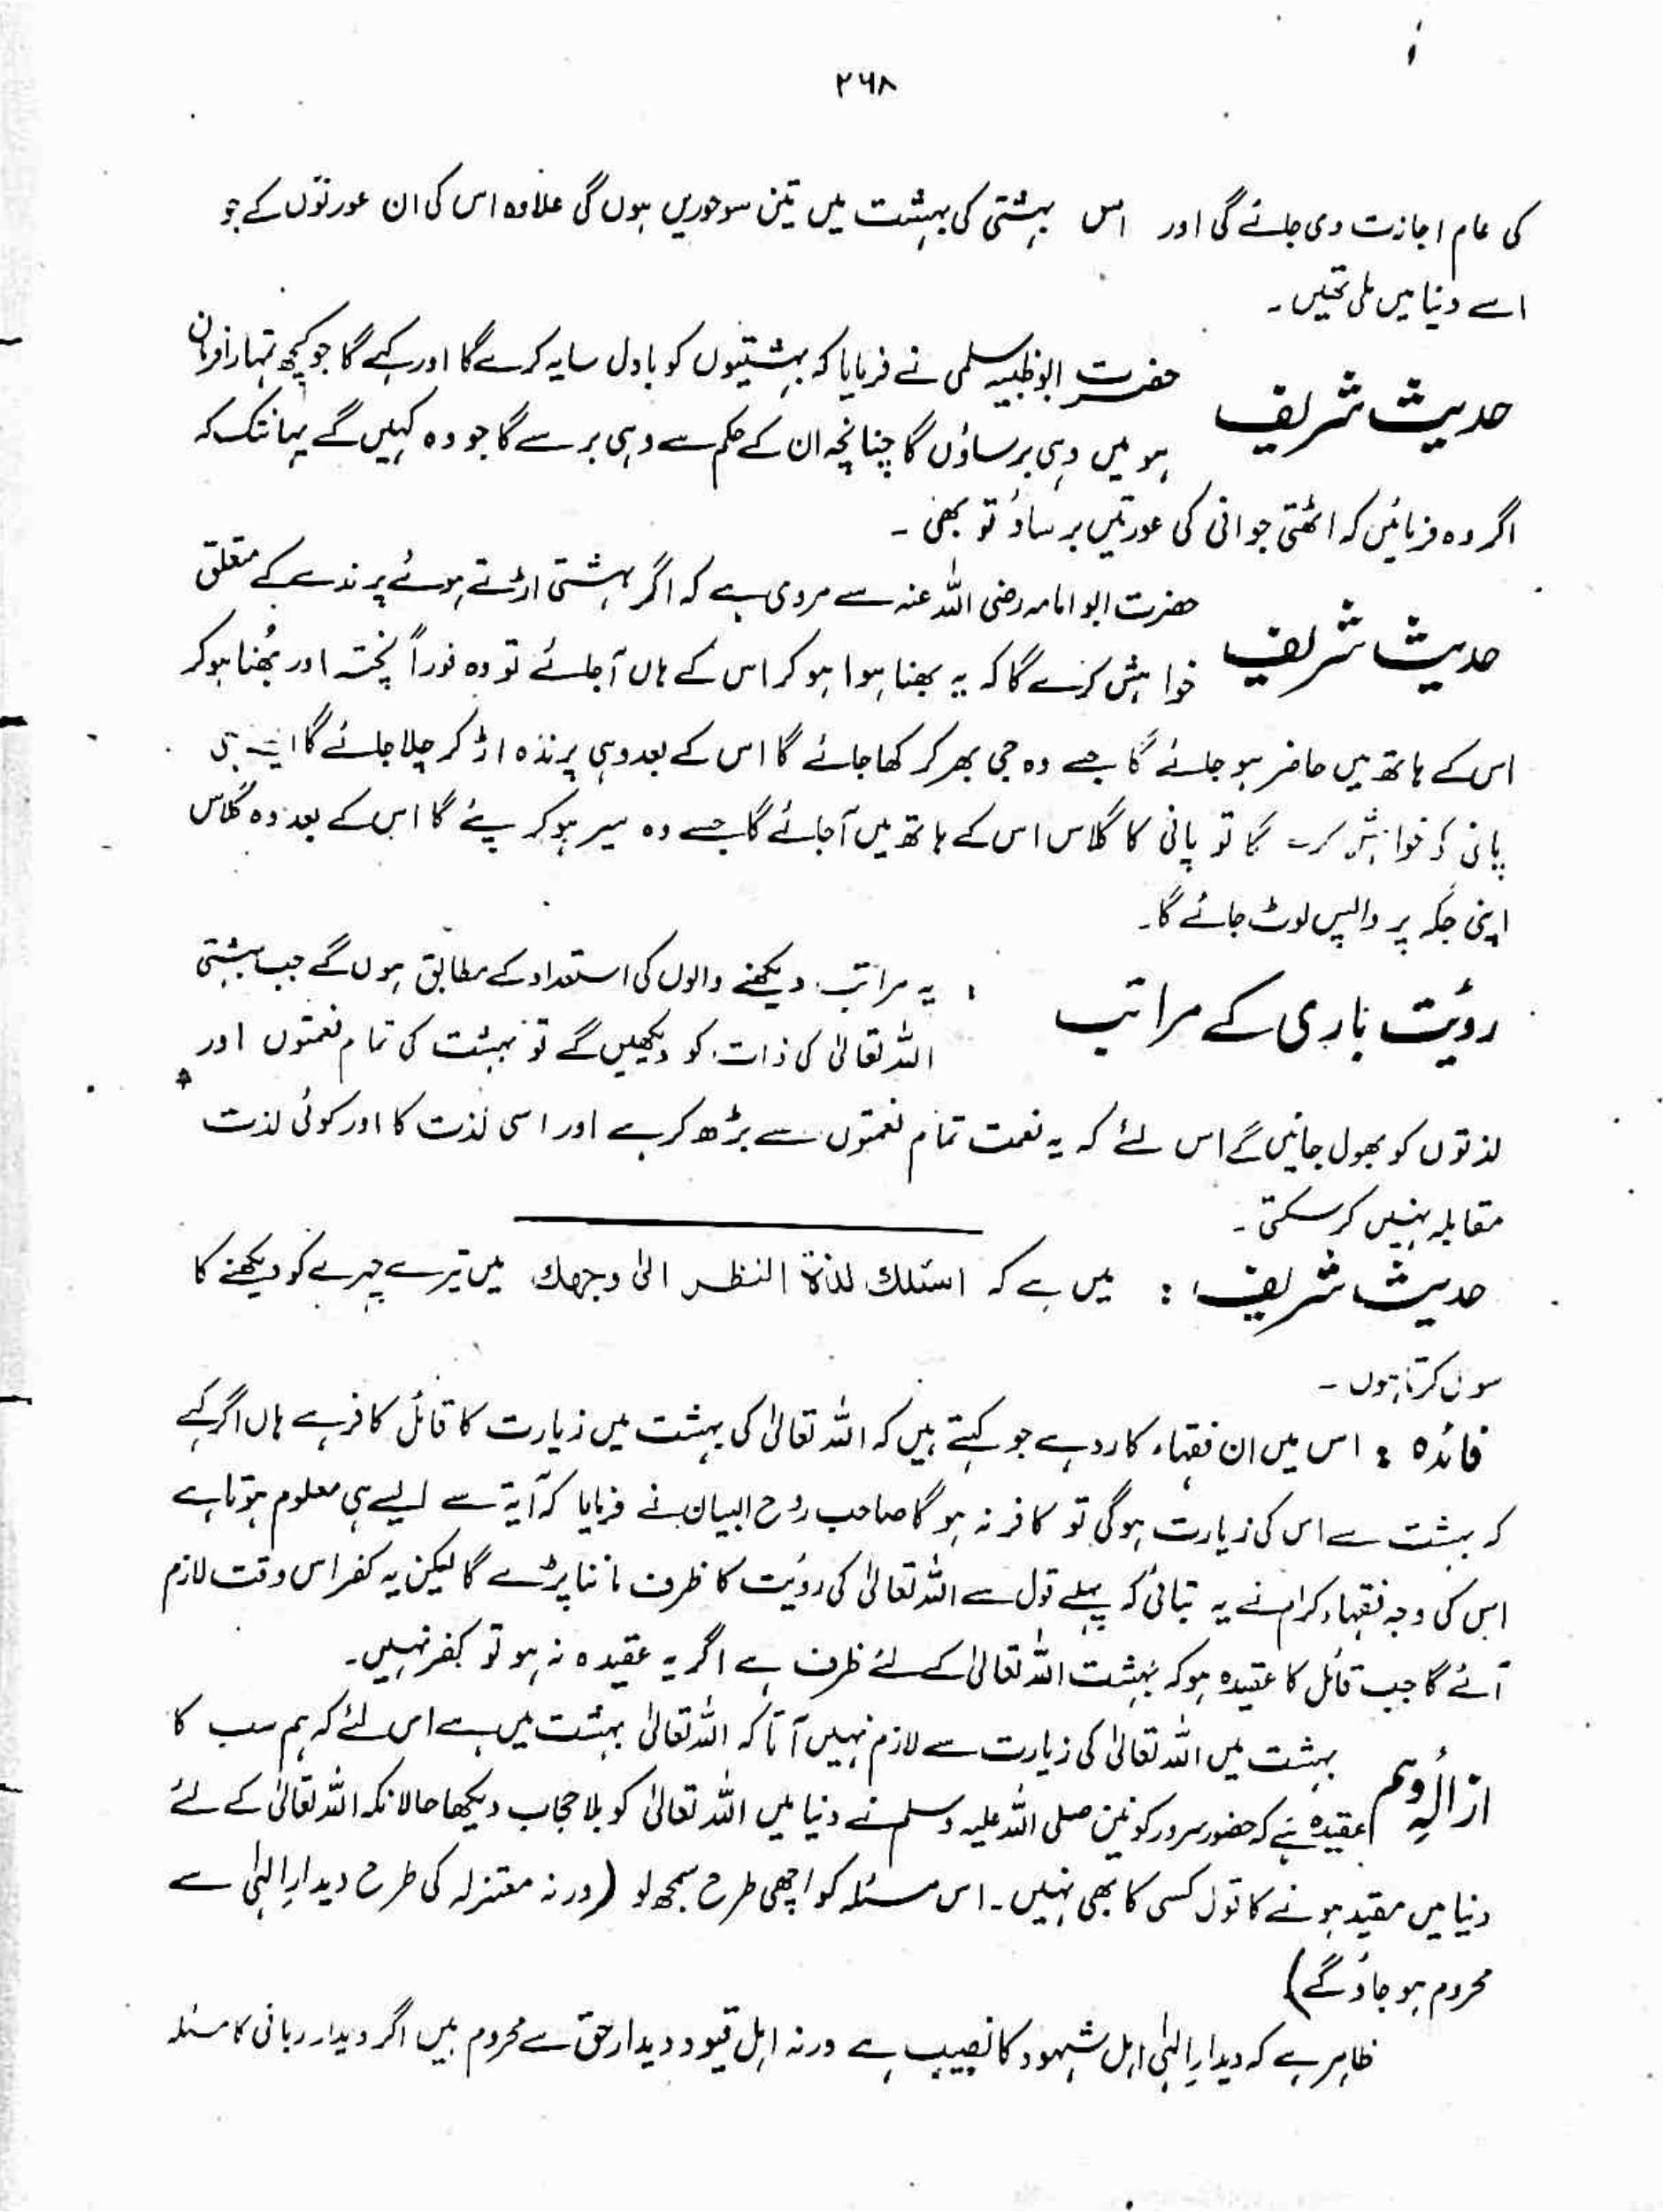 ۲۶۸
کی عام اجازت دی جائے گی اور اس بہشتی کی بہشت میں تین سو حوریں ہوں گی علاوہ اس کی ان عورتوں کے جو
اسے دنیا میں ملی تھیں۔
حدیث شریف
حضرت ابوظبیہ سلمی نے فرمایا کہ بہشتیوں کو بادل سایہ کرے گا اور کہے گا جو کچھ تمہارا فرمان
ہو میں وہی برساؤں گا چنانچہ ان کے حکم سے وہی برسے گا جو وہ کہیں گے یہانتک کہ
اگر وہ فرمائیں کہ اٹھتی جوانی کی عورتیں برساؤ تو بھی۔
حدیث شریف
حضرت ابو امامہ رضی اللہ عنہ سے مروی ہے کہ اگر بہشتی اڑتے ہوئے پرندے کے متعلق
خواہش کرے گا کہ یہ بھنا ہوا ہو کر اس کے ہاں آجائے تو وہ فوراً پختہ اور بھُنا ہو کر
اس کے ہاتھ میں حاضر ہو جائے گا جسے وہ جی بھر کر کھا جائے گا اس کے بعد وہی پرندہ اڑ کر چلا جائے گا ایسے ہی
پانی کی خواہش کرے گا تو پانی کا گلاس اس کے ہاتھ میں آجائے گا جسے وہ سیر ہو کر پئے گا اس کے بعد وہ گلاس
اپنی جگہ پر واپس لوٹ جائے گا۔
روئت باری کے مراتب
: یہ مراتب دیکھنے والوں کی استعداد کے مطابق ہوں گے جب بہشتی
اللہ تعالیٰ کی ذات کو دیکھیں گے تو بہشت کی تمام نعمتوں اور
لذتوں کو بھول جائیں گے اس لئے کہ یہ نعمت تمام نعمتوں سے بڑھ کر ہے اور اسی لذت کا اور کوئی لذت
مقابلہ نہیں کر سکتی۔
حدیث شریف : میں ہے کہ اسئلك لذة النظر الیٰ وجهك میں تیرے چہرے کو دیکھنے کا
سوال کرتا ہوں۔
فائدہ : اس میں ان فقہاء کا رد ہے جو کہتے ہیں کہ اللہ تعالیٰ کی بہشت میں زیارت کا قائل کافر ہے ہاں اگر کہے
کہ بہشت سے اس کی زیارت ہوگی تو کافر نہ ہو گا صاحب روح البیان نے فرمایا کہ آیۃ سے ایسے ہی معلوم ہوتا ہے
اس کی وجہ فقہاء کرام نے یہ بتائی کہ پہلے قول سے اللہ تعالیٰ کی روئیت کا ظرف ماننا پڑے گا لیکن یہ کفر اس وقت لازم
آئے گا جب قائل کا عقیدہ ہو کہ بہشت اللہ تعالیٰ کے لئے ظرف ہے اگر یہ عقیدہ نہ ہو تو کفر نہیں۔
ازالۂ وہم
بہشت میں اللہ تعالیٰ کی زیارت سے لازم نہیں آتا کہ اللہ تعالیٰ بہشت میں ہے اس لئے کہ ہم سب کا
عقیدہ ہے کہ حضور سرور کونین صلی اللہ علیہ وسلم نے دنیا میں اللہ تعالیٰ کو بلا حجاب دیکھا حالانکہ اللہ تعالیٰ کے لئے
دنیا میں مقید ہونے کا قول کسی کا بھی نہیں۔ اس مسئلہ کو اچھی طرح سمجھ لو (ورنہ معتزلہ کی طرح دیدارِ الٰہی سے
محروم ہو جاؤ گے)
ظاہر ہے کہ دیدارِ الٰہی اہل شہود کا نصیب ہے ورنہ اہل قیود دیدار حق سے محروم ہیں اگر دیدار ربانی کا مسئلہ